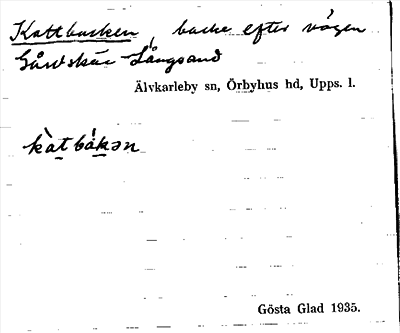 Kattbacken, backe efter vägen
Gårdskär-Långsand
Älvkarleby sn, Örbyhus hd, Upps. l.
kàtbákən
Gösta Glad 1935.